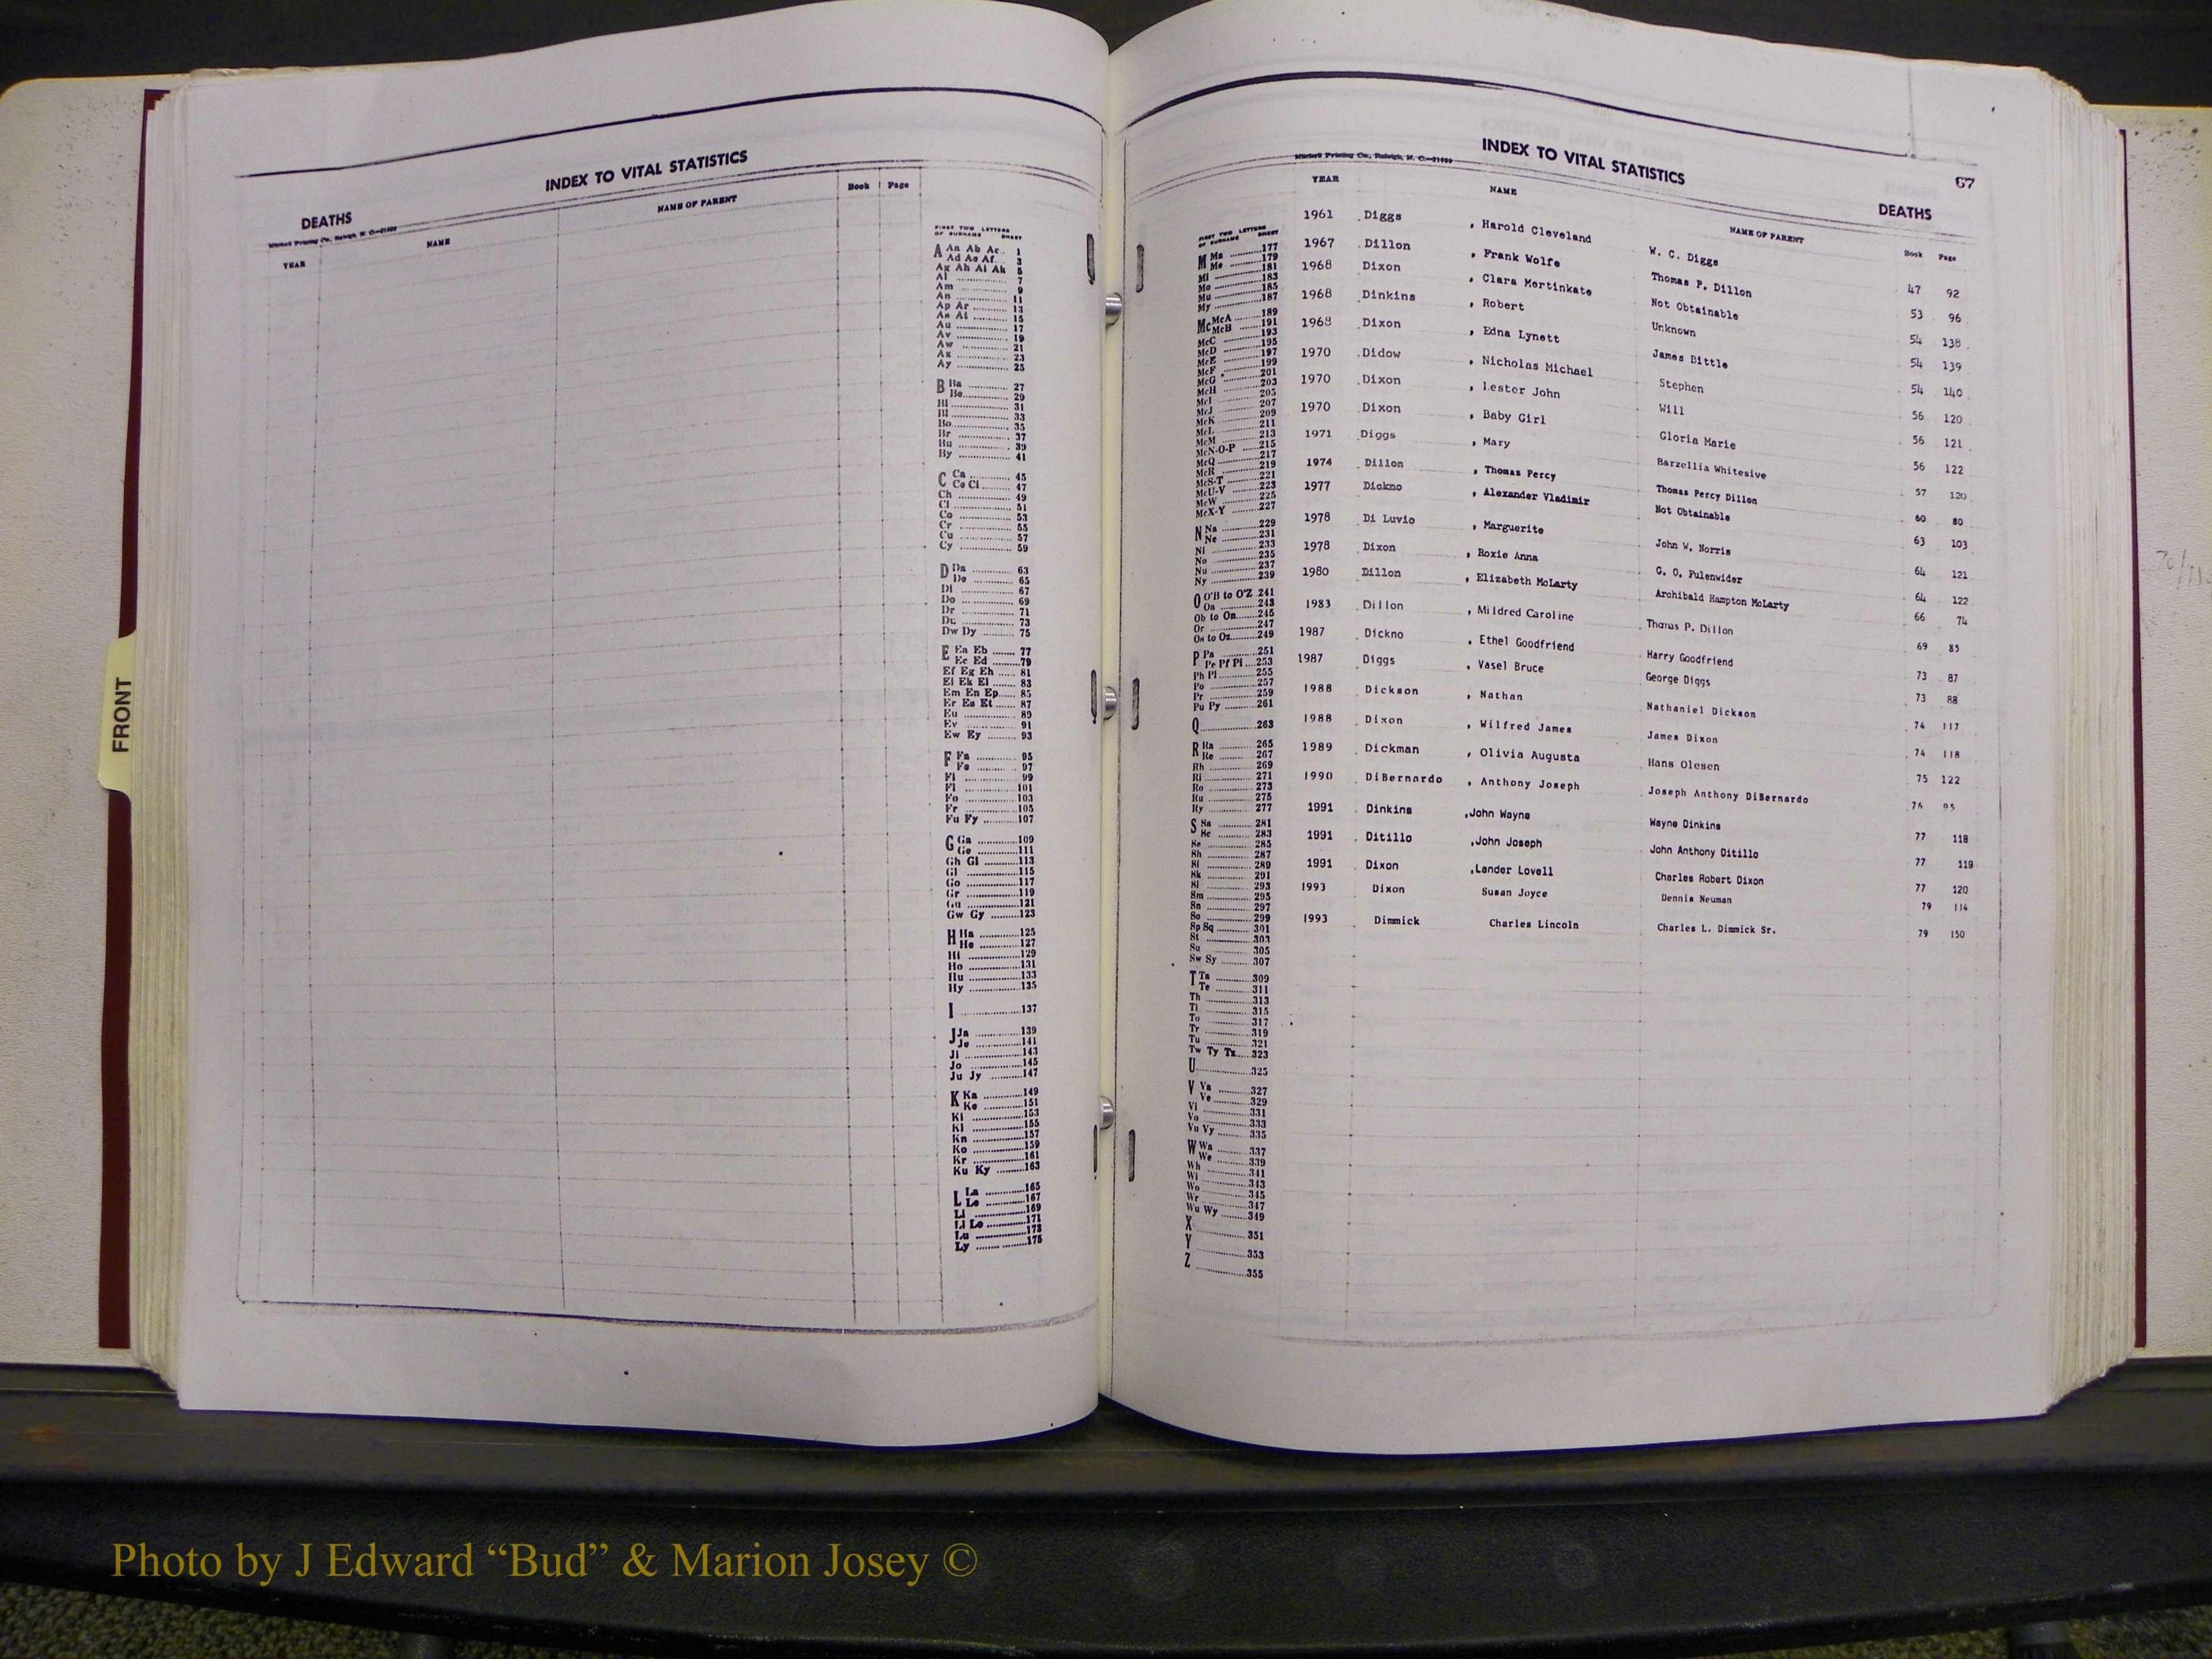 INDEX TO VITAL STATISTICS
DEATHS
YEAR NAME NAME OF PARENT Book Page
FIRST TWO LETTERS OF SURNAME SHEET
A Aa Ab Ac 1
Ad Ae Af 3
Ag Ah Ai Ak 5
Al 7
Am 9
An 11
Ap Ar 13
As At 15
Au 17
Av 19
Aw 21
Ax 23
Ay 25
B Ba 27
Be 29
Bi 31
Bl 33
Bo 35
Br 37
Bu 39
By 41
C Ca 45
Ce Ci 47
Ch 49
Cl 51
Co 53
Cr 55
Cu 57
Cy 59
D Da 63
De 65
Di 67
Do 69
Dr 71
Du 73
Dw Dy 75
E Ea Eb 77
Ec Ed 79
Ef Eg Eh 81
Ei Ek El 83
Em En Ep 85
Er Es Et 87
Eu 89
Ev 91
Ew Ey 93
F Fa 95
Fe 97
Fi 99
Fl 101
Fo 103
Fr 105
Fu Fy 107
G Ga 109
Ge 111
Gh Gi 113
Gl 115
Go 117
Gr 119
Gu 121
Gw Gy 123
H Ha 125
He 127
Hi 129
Ho 131
Hu 133
Hy 135
I 137
J Ja 139
Je 141
Ji 143
Jo 145
Ju Jy 147
K Ka 149
Ke 151
Ki 153
Kl 155
Kn 157
Ko 159
Kr 161
Ku Ky 163
L La 165
Le 167
Li 169
Ll Lo 171
Lu 173
Ly 175
INDEX TO VITAL STATISTICS
67
DEATHS
YEAR NAME NAME OF PARENT Book Page
FIRST TWO LETTERS OF SURNAME SHEET
M Ma 177
Me 179
Mi 181
Mo 183
Mu 185
My 187
Mc McA 189
McB 191
McC 193
McD 195
McE 197
McF 199
McG 201
McH 203
McI 205
McJ 207
McK 209
McL 211
McM 213
McN-O-P 215
McQ 217
McR 219
McS-T 221
McU-V 223
McW 225
McX-Y 227
N Na 229
Ne 231
Ni 233
No 235
Nu 237
Ny 239
O O'B to O'Z 241
Oa 243
Ob to On 245
Or 247
Os to Oz 249
P Pa 251
Pe Pf Pl 253
Ph Pl 255
Po 257
Pr 259
Pu Py 261
Q 263
R Ra 265
Re 267
Rh 269
Ri 271
Ro 273
Ru 275
Ry 277
S Sa 281
Sc 283
Se 285
Sh 287
Si 289
Sk 291
Sl 293
Sm 295
Sn 297
So 299
Sp Sq 301
St 303
Su 305
Sw Sy 307
T Ta 309
Te 311
Th 313
Ti 315
To 317
Tr 319
Tu 321
Tw Ty Tz 323
U 325
V Va 327
Ve 329
Vi 331
Vo 333
Vu Vy 335
W Wa 337
We 339
Wh 341
Wi 343
Wo 345
Wr 347
Wu Wy 349
X 351
Y 353
Z 355
1961 Diggs , Harold Cleveland W. C. Diggs 47 92
1967 Dillon , Frank Wolfe Thomas P. Dillon 53 96
1968 Dixon , Clara Mertinkate Not Obtainable 54 138
1968 Dinkins , Robert Unknown 54 139
1968 Dixon , Edna Lynett James Bittle 54 140
1970 Didow , Nicholas Michael Stephen 56 120
1970 Dixon , Lester John Will 56 121
1970 Dixon , Baby Girl Gloria Marie 56 122
1971 Diggs , Mary Barzellia Whitesive 57 120
1974 Dillon , Thomas Percy Thomas Percy Dillon 60 80
1977 Dickno , Alexander Vladimir Not Obtainable 63 103
1978 Di Luvio , Marguerite John W. Norris 64 121
1978 Dixon , Roxie Anna G. O. Fulenwider 64 122
1980 Dillon , Elizabeth McLarty Archibald Hampton McLarty 66 74
1983 Dillon , Mildred Caroline Thomas P. Dillon 69 85
1987 Dickno , Ethel Goodfriend Harry Goodfriend 73 87
1987 Diggs , Vasel Bruce George Diggs 73 88
1988 Dickson , Nathan Nathaniel Dickson 74 117
1988 Dixon , Wilfred James James Dixon 74 118
1989 Dickman , Olivia Augusta Hans Olesen 75 122
1990 DiBernardo , Anthony Joseph Joseph Anthony DiBernardo 76 95
1991 Dinkins ,John Wayne Wayne Dinkins 77 118
1991 Ditillo ,John Joseph John Anthony Ditillo 77 119
1991 Dixon ,Lander Lovell Charles Robert Dixon 77 120
1993 Dixon Susan Joyce Dennis Neuman 79 114
1993 Dimmick Charles Lincoln Charles L. Dimmick Sr. 79 150
FRONT
Photo by J Edward “Bud” & Marion Josey ©